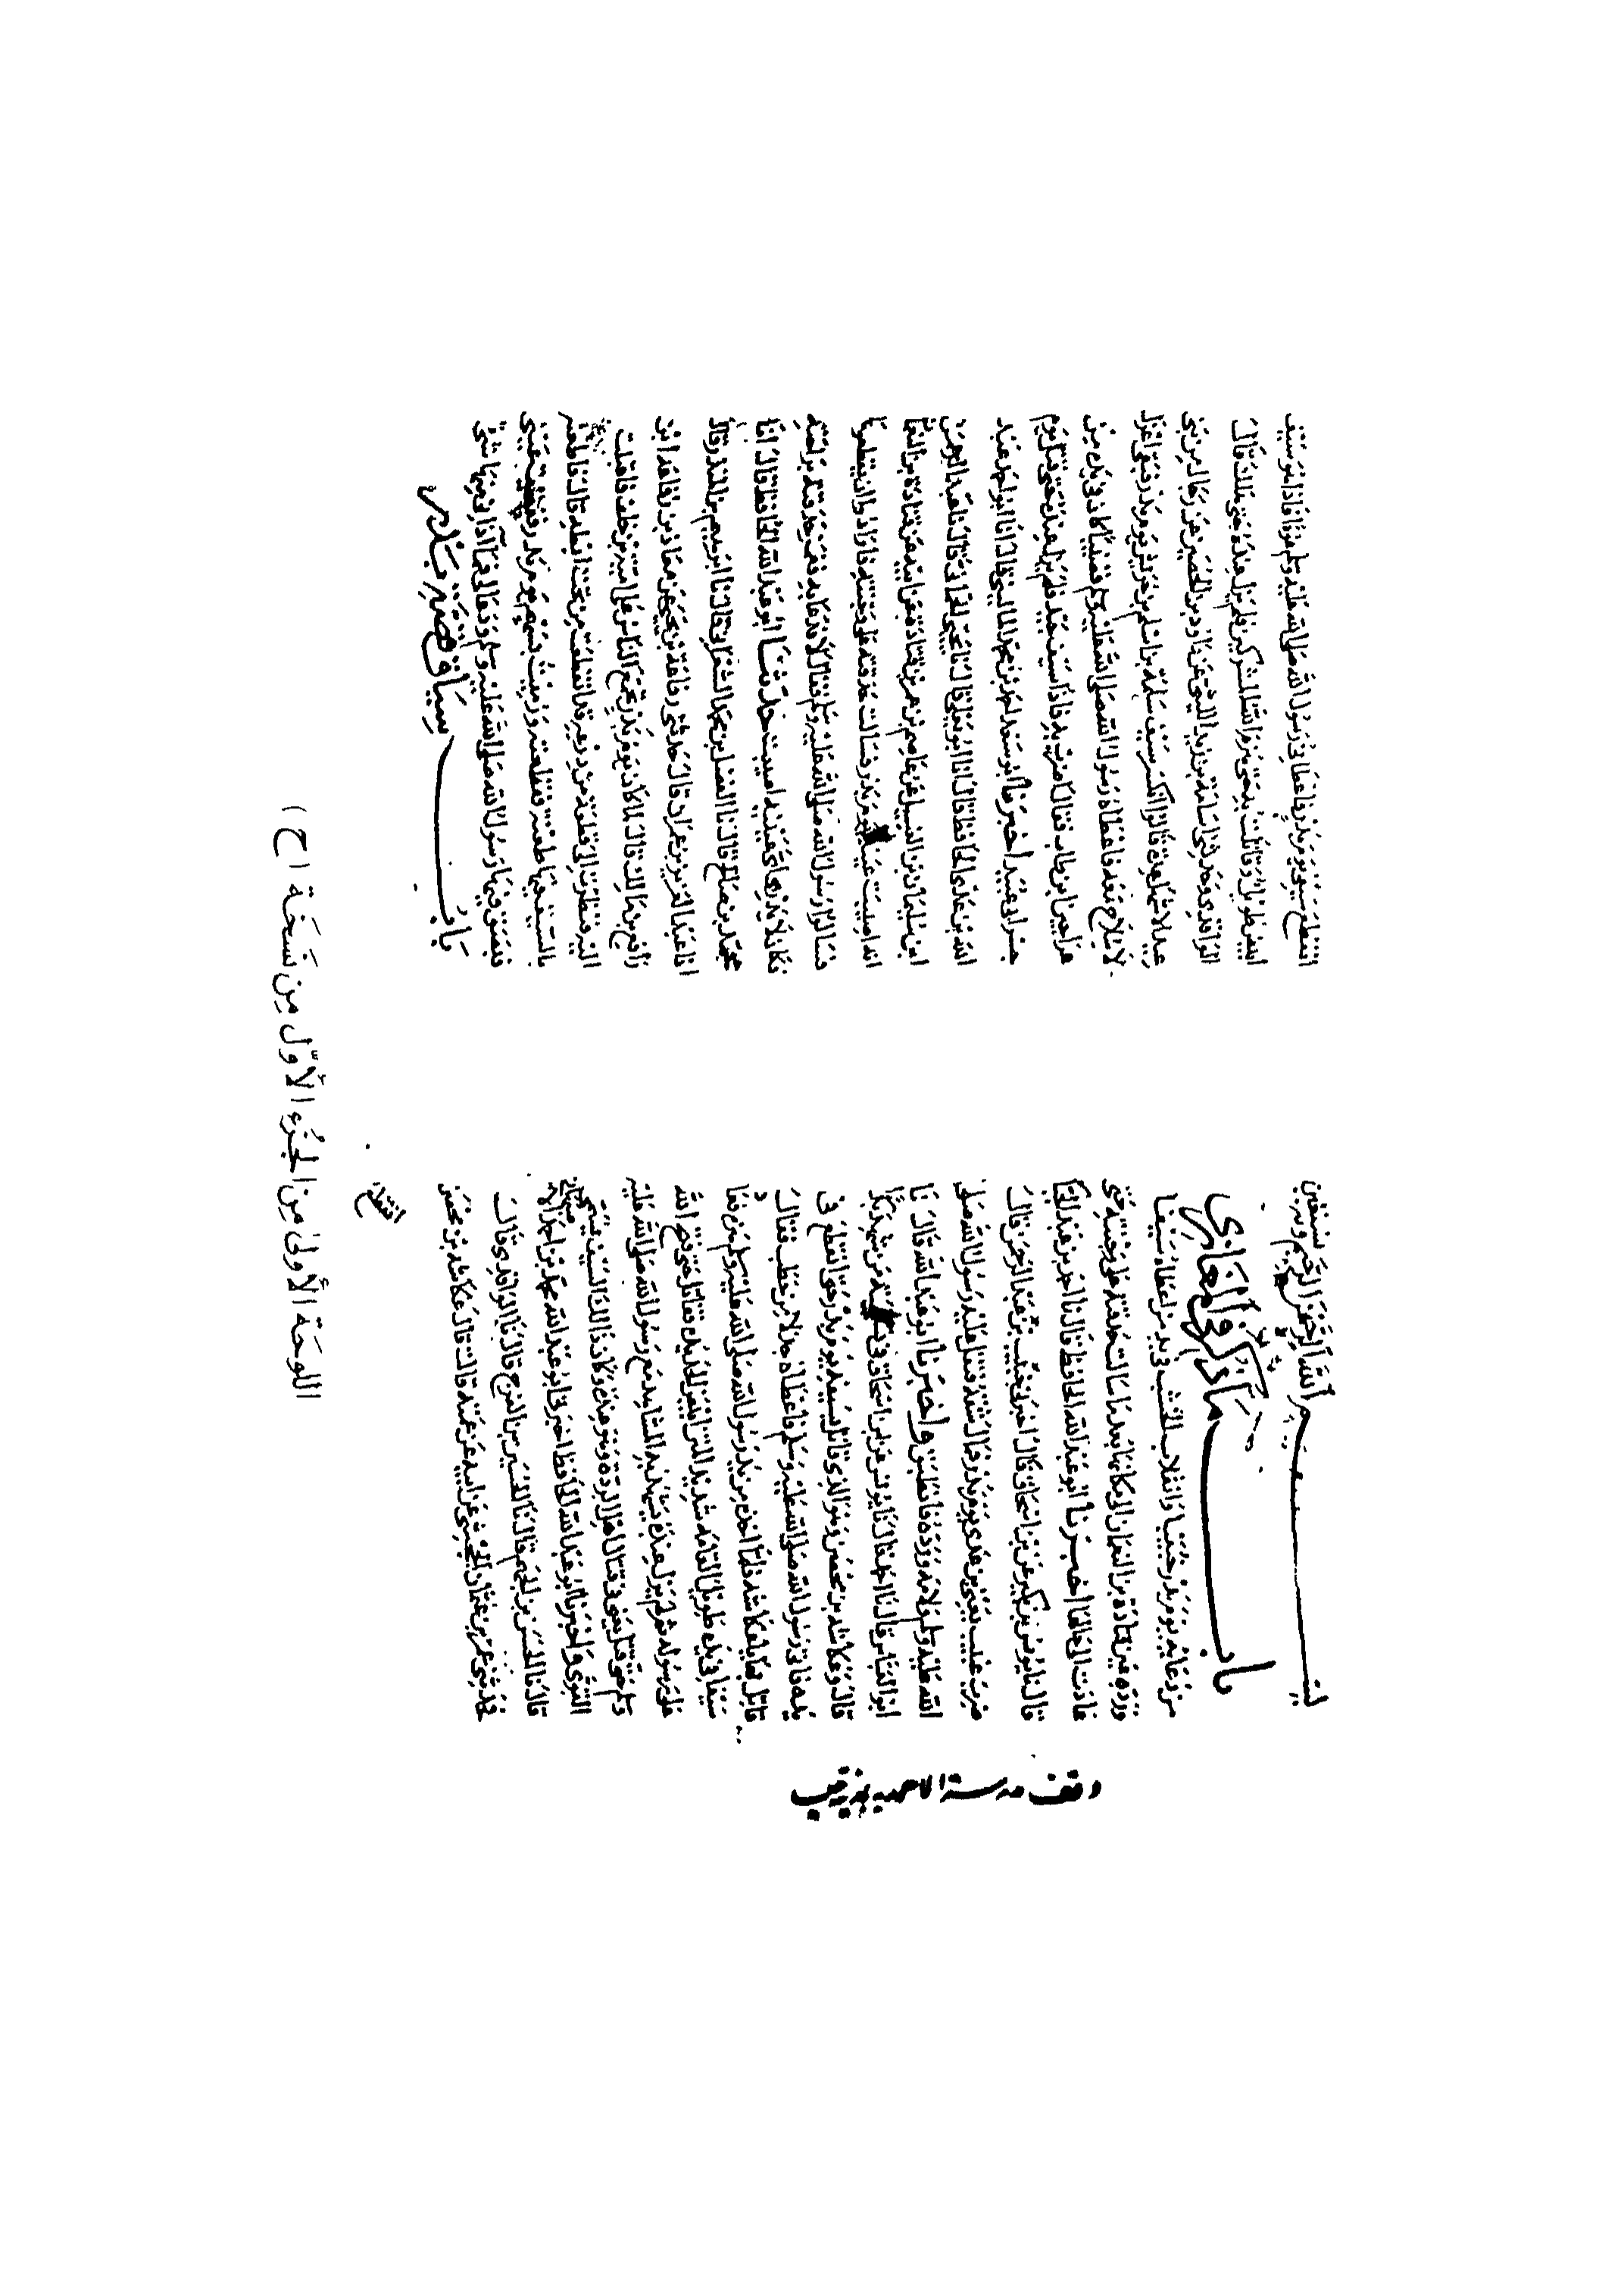 بسم الله الرحمن الرحيم وبه نستعين
باب ما ذكر في المغازي
من دعائه يوم بدر خبيبا وانقلاب الخشب في يد من اعطاه سيفا
ورده عين قتادة بن النعمان الى مكانها بعد ما سالت حدقته على وجنته حتى
عادت الى حالها اخبرنا ابو عبد الله الحافظ قال نا احمد بن عبد الجبار
قال نا يونس بن بكير عن ابن اسحاق قال اخبرني خبيب بن عبد الرحمن قال
ضرب خبيب يعني بن عدي يوم بدر فمال شقه فتفل عليه رسول الله صلى
الله عليه وسلم ولامه ورده فانطبق واخبرنا ابو عبد الله قال نا
ابو العباس قال نا احمد قال نا يونس عن ابن اسحاق في من شهد بدرا
قال وعكاشة بن محصن وهو الذي قاتل بسيفه يوم بدر حتى انقطع في
يده فاتى رسول الله صلى الله عليه وسلم فاعطاه جذلا من حطب فقال
قاتل بها يا عكاشة فلما اخذه من يد رسول الله صلى الله عليه وسلم هزه فعاد
سيفا في يده طويل القامة شديد المتن ابيض الحديدة فقاتل حتى فتح الله
على رسوله ثم لم يزل عنده يشهد به المشاهد مع رسول الله صلى الله عليه
وسلم حتى قتل يعني في قتال اهل الردة وهو عنده وكان ذلك السيف يسمى
القوي واخبرنا ابو عبد الله الحافظ اخبرنا ابو عبد الله محمد بن احمد الاصبهاني
قال نا الحسن بن الجهم قال نا الحسين بن الفرج قال نا الواقدي قال
فحدثني عمر بن عثمان الجحشي عن ابيه عن عمته قالت قال عكاشة بن محصن
انقطع
وقف مدرسة الاحمديه
انقطع سيفي يوم بدر فاعطاني رسول الله صلى الله عليه وسلم عودا فاذا هو سيف
ابيض طويل وقاتلت به حتى هزم الله المشركين فلم يزل عنده حتى هلك قال
الواقدي وحدثني اسامة بن زيد الليثي عن داود بن الحصين عن رجال من بني
عبد الاشهل عدة قالوا انكسر سيف سلمة بن اسلم بن حريش يوم بدر فبقي اعزل
لا سلاح معه فاعطاه رسول الله صلى الله عليه وسلم قضيبا كان في يده من
عراجين ابن طاب فقال اضرب به فاذا سيف جيد فلم يزل عنده حتى قتل يوم
جسر ابي عبيد اخبرنا ابو سعد احمد بن محمد الماليني قال انا ابو احمد عبد
الله بن عدي الحافظ قال انا ابو يعلى قال نا يحيى الحماني قال نا عبد الرحمن
ابن سليمان بن الغسيل عن عاصم بن عمر بن قتادة عن ابيه عن قتادة بن النعمان
انه اصيبت عينه يوم بدر فسالت حدقته على وجنته فارادوا ان يقطعوها
فسالوا رسول الله صلى الله عليه وسلم فقال لا فدعا به فغمز حدقته براحته
فكان لا يدرى اي عينيه اصيبت حدثنا ابو عبد الله الحافظ قال انا
محمد بن صالح قال نا الفضل بن محمد الشعراني قال نا ابراهيم بن المنذر قال
انا عبد العزيز بن عمران قال حدثني رفاعة بن يحيى عن معاذ بن رفاعة ابن
رافع بن مالك قال لما كان يوم بدر تجمع الناس على امية بن خلف فاقبلت
اليه فنظرت الى قطعة من درعه قد انقطعت من تحت ابطه قال فاطعنه
بالسيف فيها طعنة فقطعته ورميت بسهم يوم بدر ففقئت عيني
فبصق فيها رسول الله صلى الله عليه وسلم ودعا لي فما آذاني منها شيء
باب سياق قصة بدر
اللوحَة الأولى مِن الجُزء الأوّل مِن نسَخَة (ح)